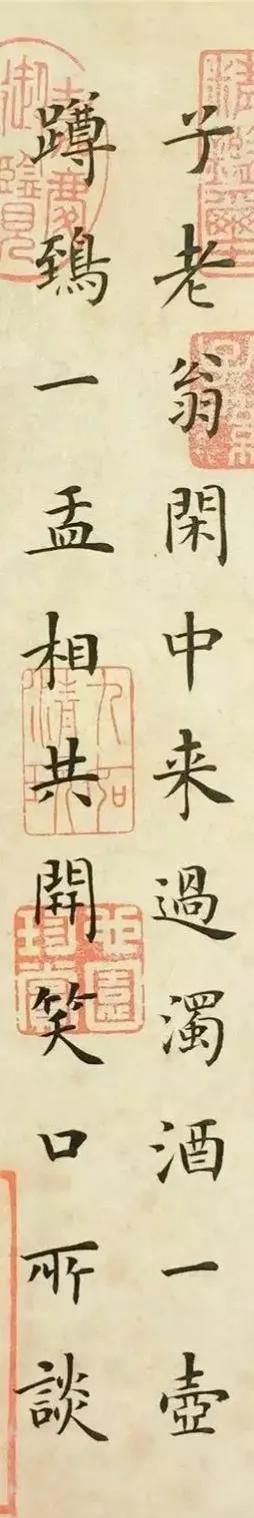 子老翁閑中来過濁酒一壺
蹲鵄一盂相共開笑口所談